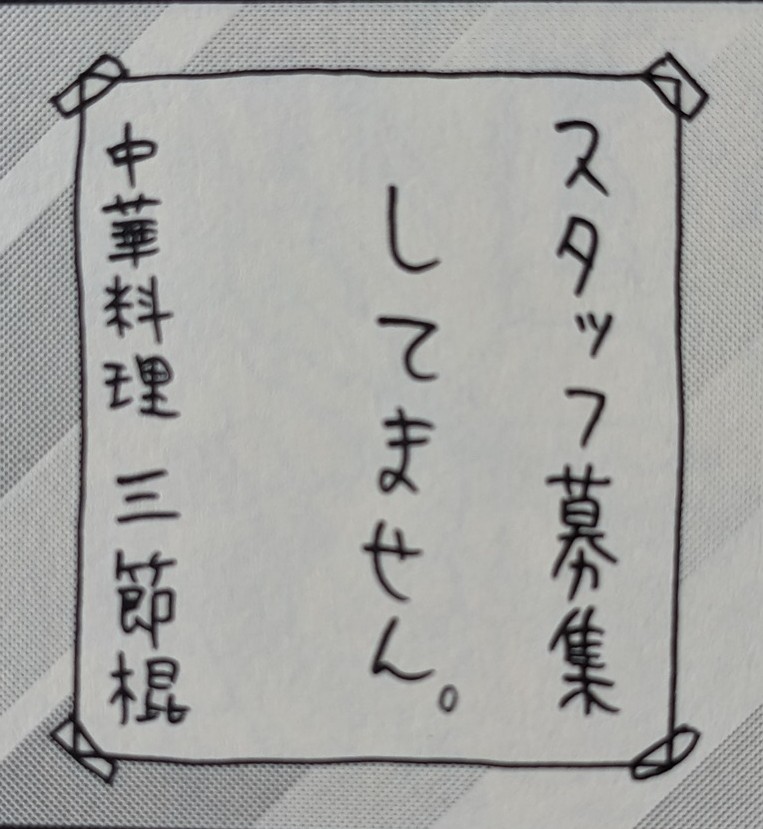 スタッフ募集
してません。
中華料理 三節棍